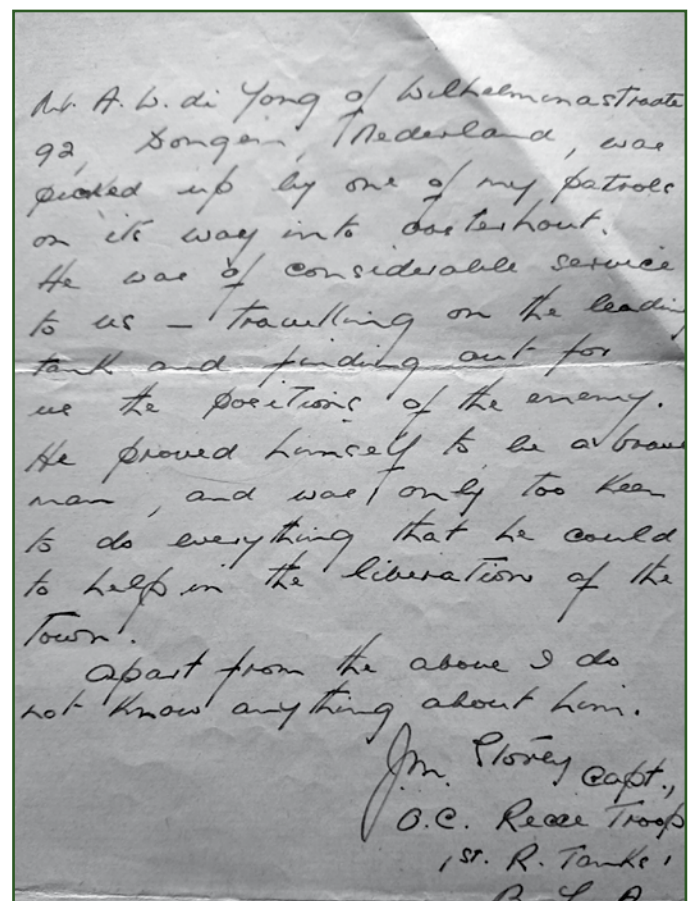 Mr. A. W. di Yong of Wilhelminastraate
92, Dongen, Nederland, was
picked up by one of my patrols
on its way into Oosterhout.
He was of considerable service
to us – travelling on the leading
tank and finding out for
us the positions of the enemy.
He proved himself to be a brave
man, and was only too keen
to do everything that he could
to help in the liberation of the
Town.
Apart from the above I do
not know anything about him.
J.M. Storey Capt.,
O.C. Recce Troop
1st. R. Tanks,
B. L. A.